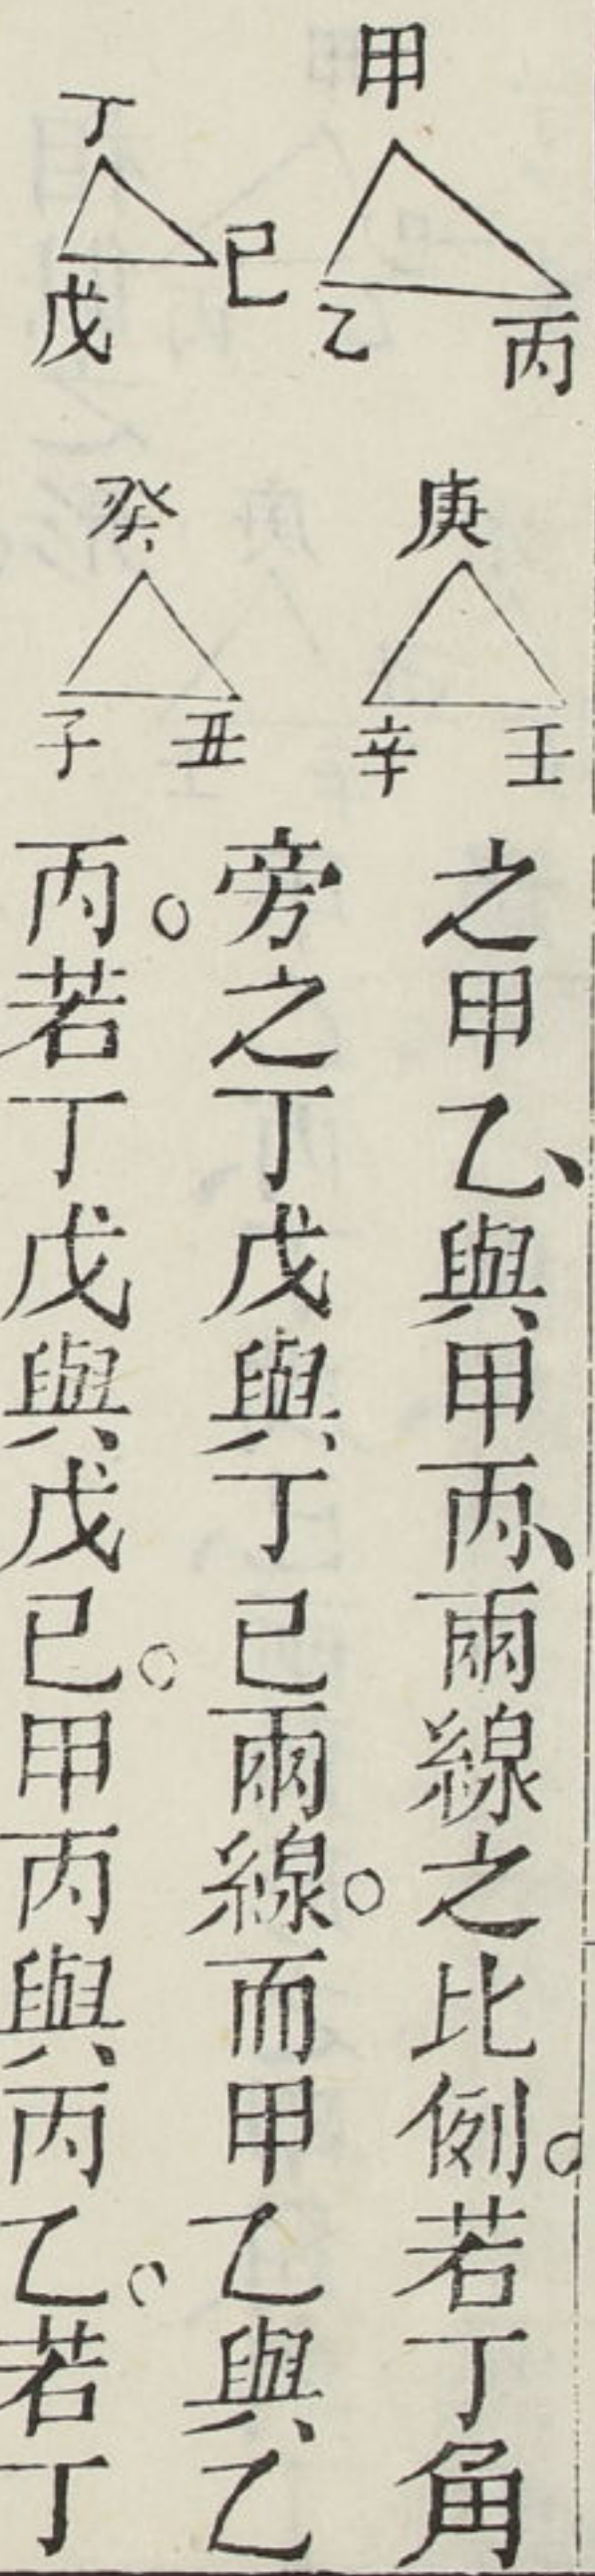 甲
乙
丙
丁
戊
己
庚
辛
壬
癸
子
丑
之甲乙、與甲丙、兩線之比例。若丁角
旁之丁戊與丁己兩線。而甲乙與乙
丙。若丁戊與戊己。甲丙與丙乙。若丁